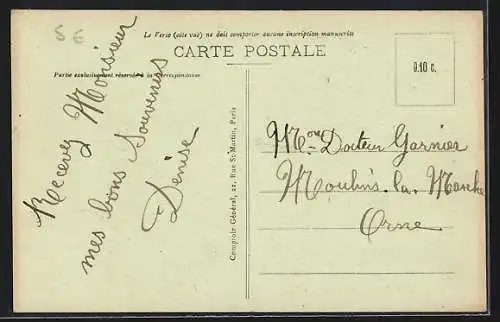 Le Verso (côté vue) ne doit comporter aucune inscription manuscrite
CARTE POSTALE
Partie exclusivement réservée à la Correspondance
0.10 c.
Recevez Monsieur
mes bons Souvenirs
Denise
Comptoir Général, 22, Rue St-Martin, Paris
Docteur Garnier
Moulins-la-Marche
Orne